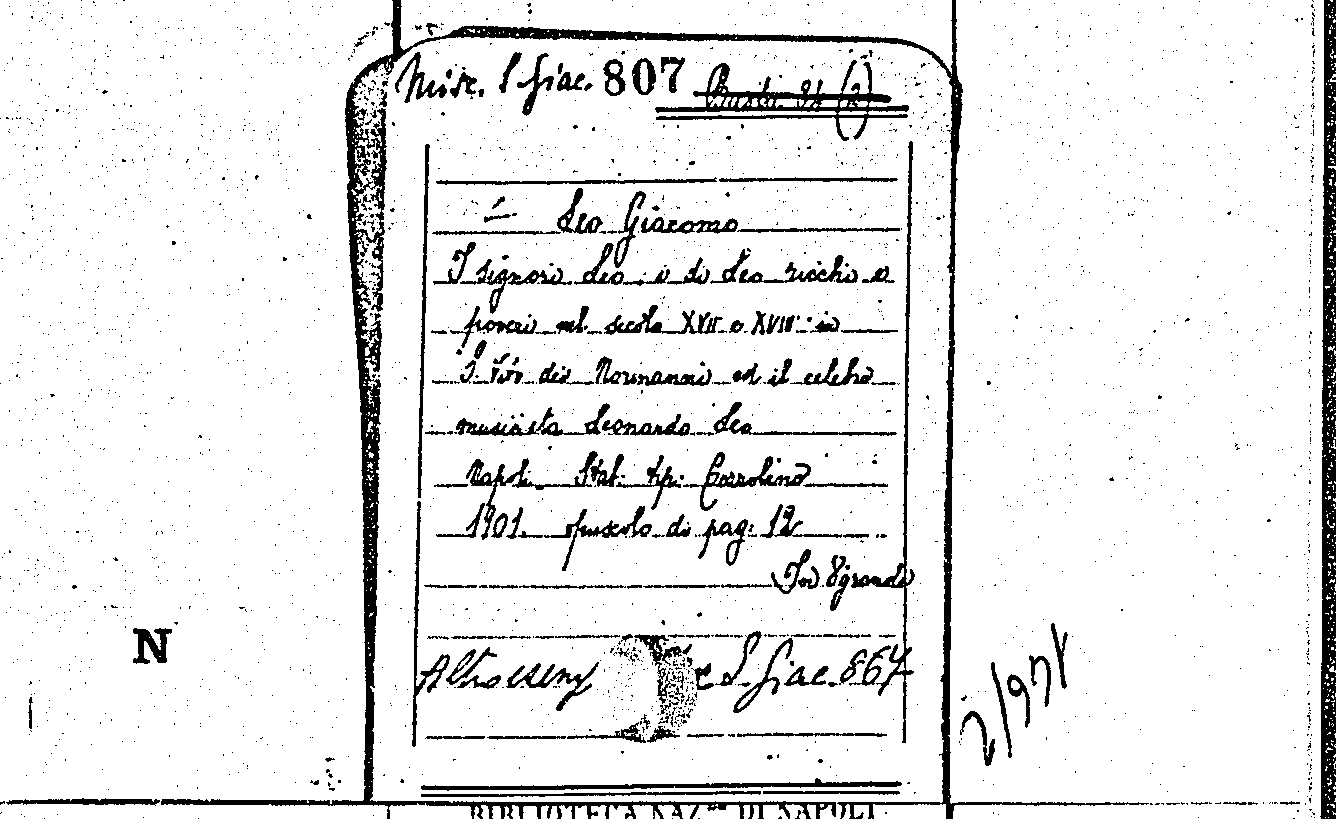 Misc. S Giac. 807 Busta 94 (2)
Leo Giacomo
I signori Leo e di Leo ricchi e
poveri nel secolo XVII e XVIII in
S. Vito dei Normanni ed il celebre
musicista Leonardo Leo
Napoli Stab. tip. Cozzolino
1901. opuscolo di pag. 12
In 8 grande
Altro esem S. Giac. 864
N
BIBLIOTECA NAZ. DI NAPOLI